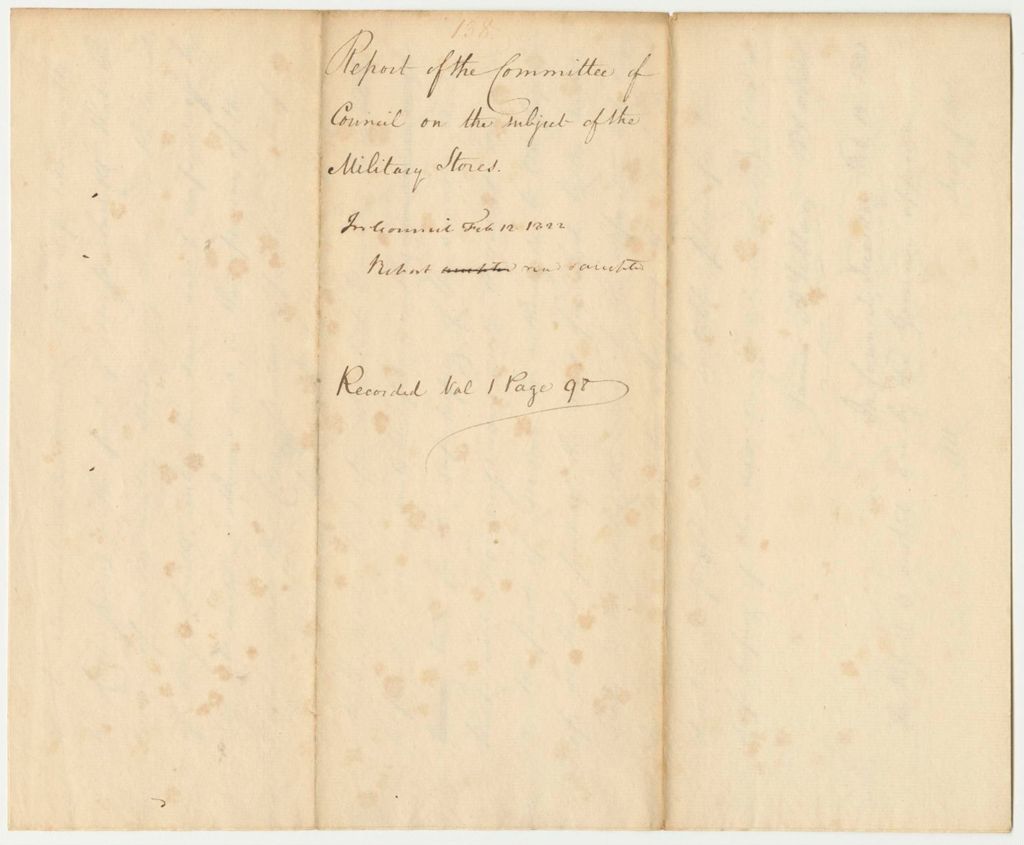 138.
Report of the Committee of
Council on the subject of the
Military Stores.
In Council Feb. 12 1822
Report accepted
Recorded Vol 1 Page 98